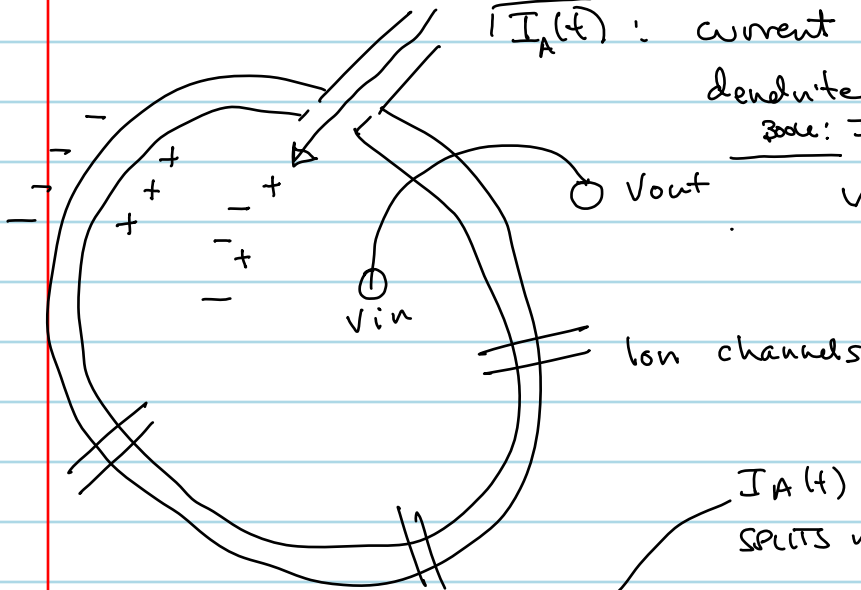 I_A(t) : current
dendrite
Book: I
Vout
V
Vin
Ion channels
I_A(t)
SPLITS